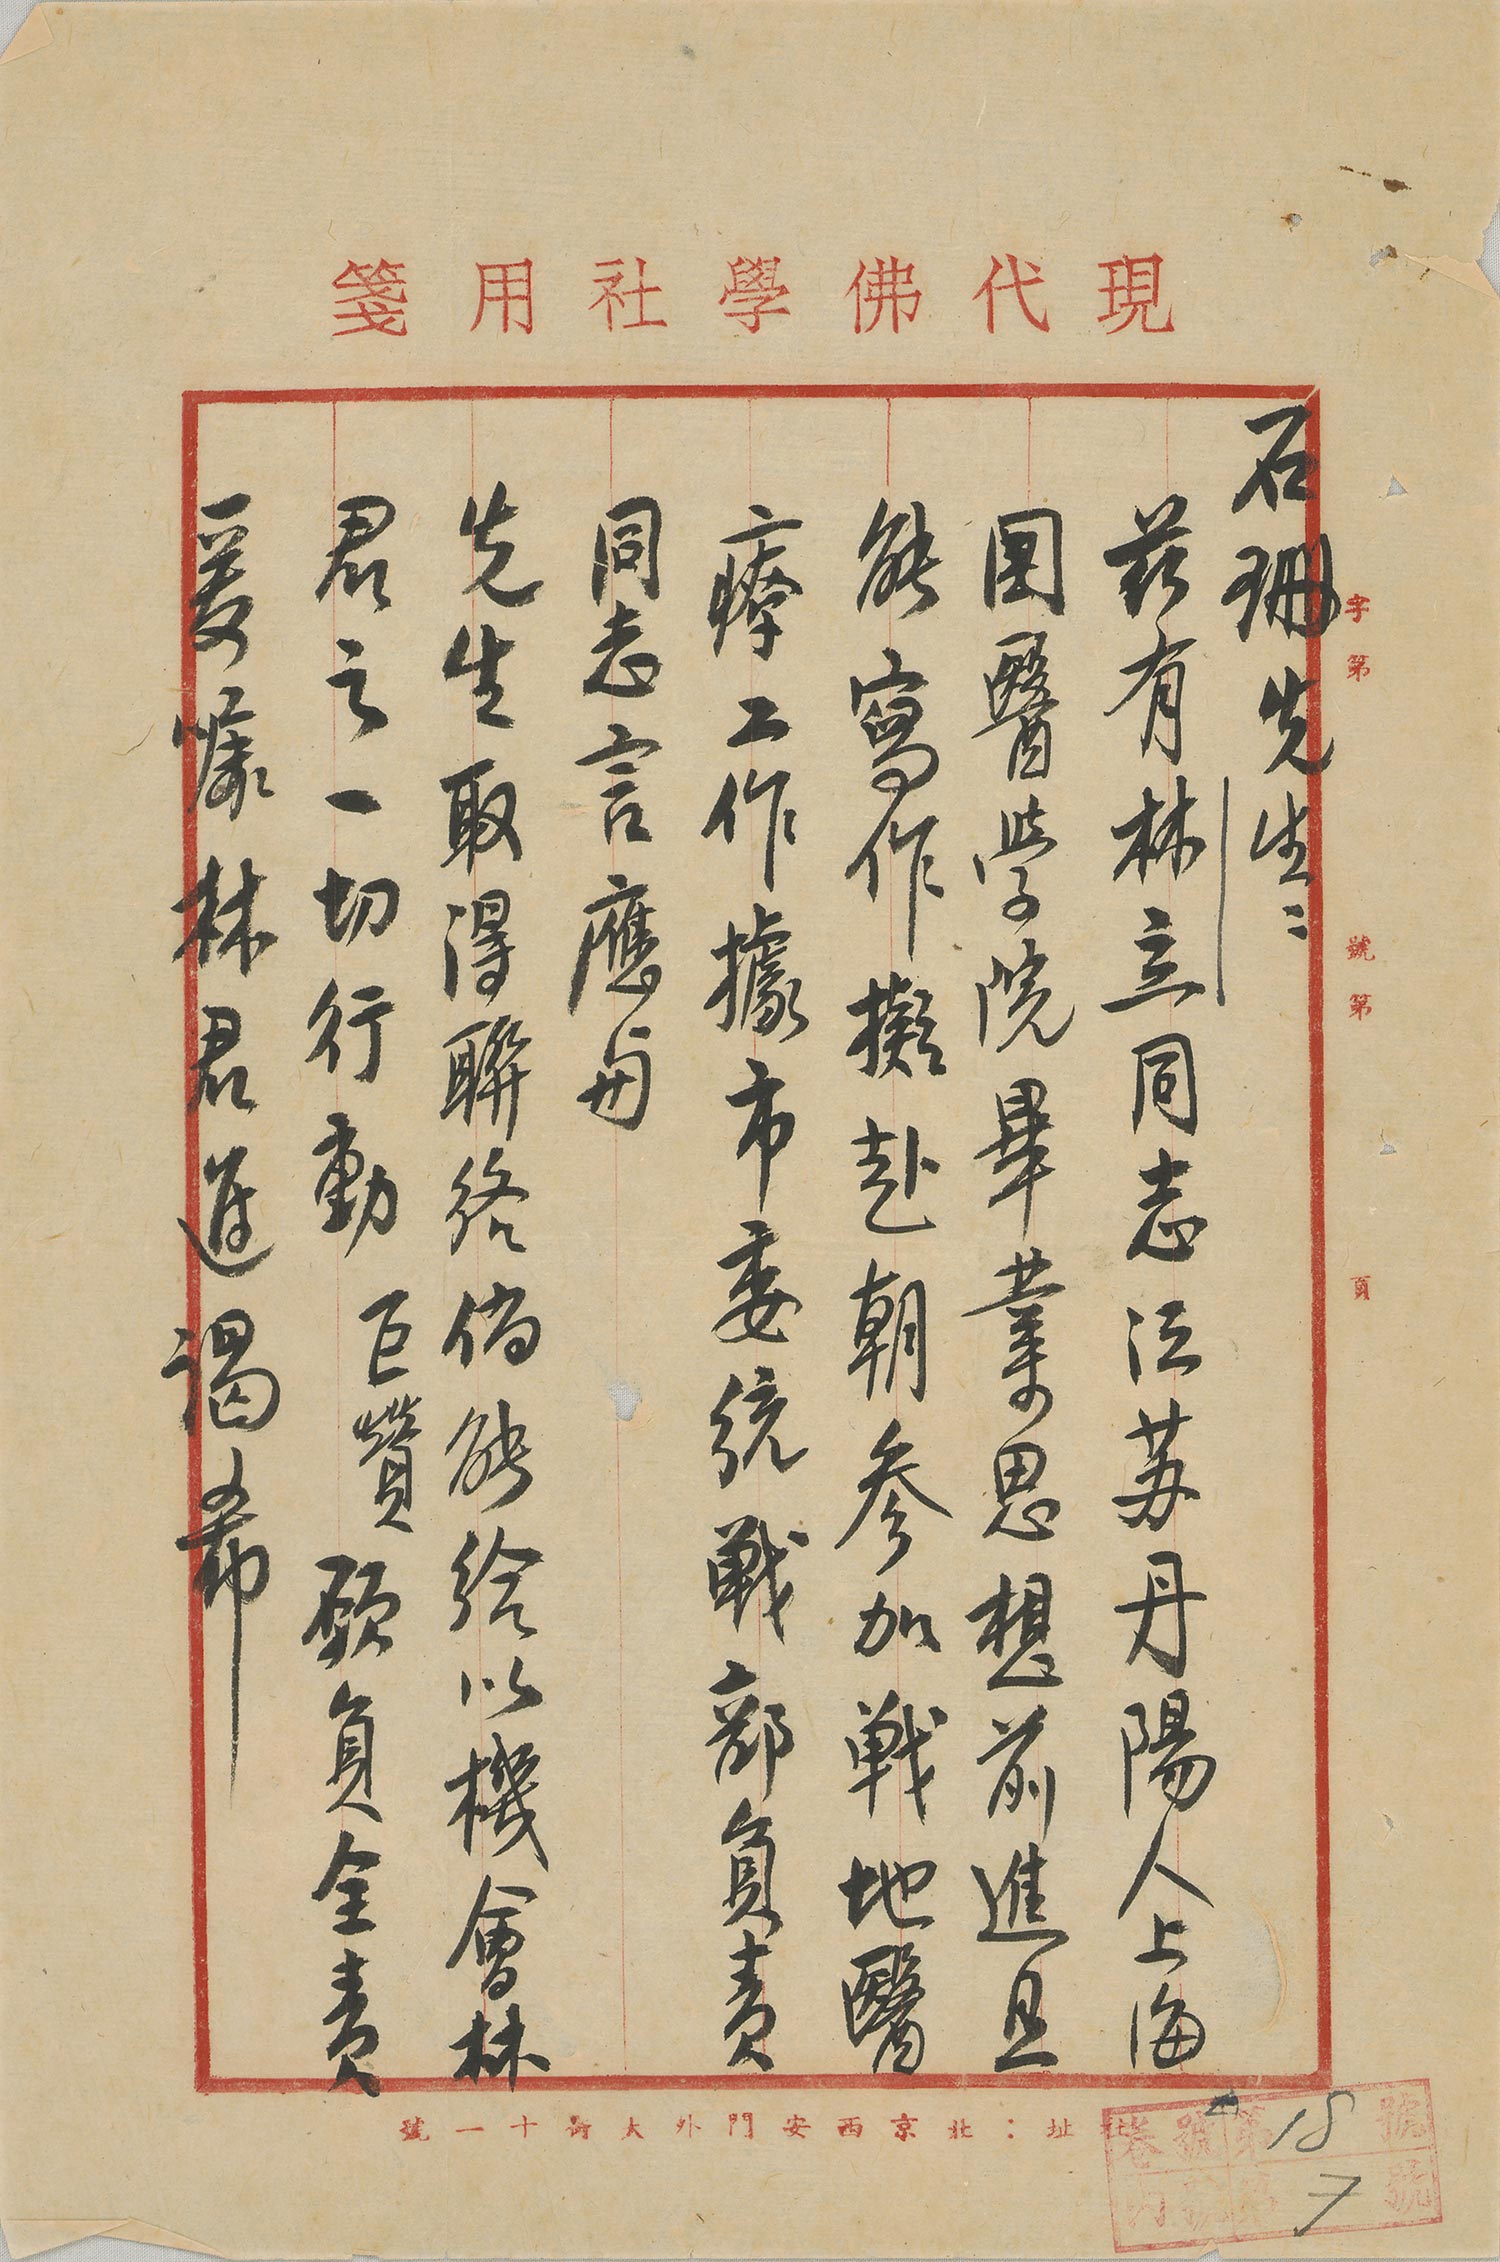 現代佛學社用箋
石珊先生：
茲有林立同志江苏丹陽人上海
国醫学院畢業思想前進且
能寫作擬赴朝参加戦地醫
療工作據市委統戦部負責
同志言應与
先生取得聯絡倘能給以機會林
君之一切行動巨贊願負全責
爰嘱林君進謁希
字第
號第
頁
社址：北京西安門外大街十一號
卷號第18號
內號第7號